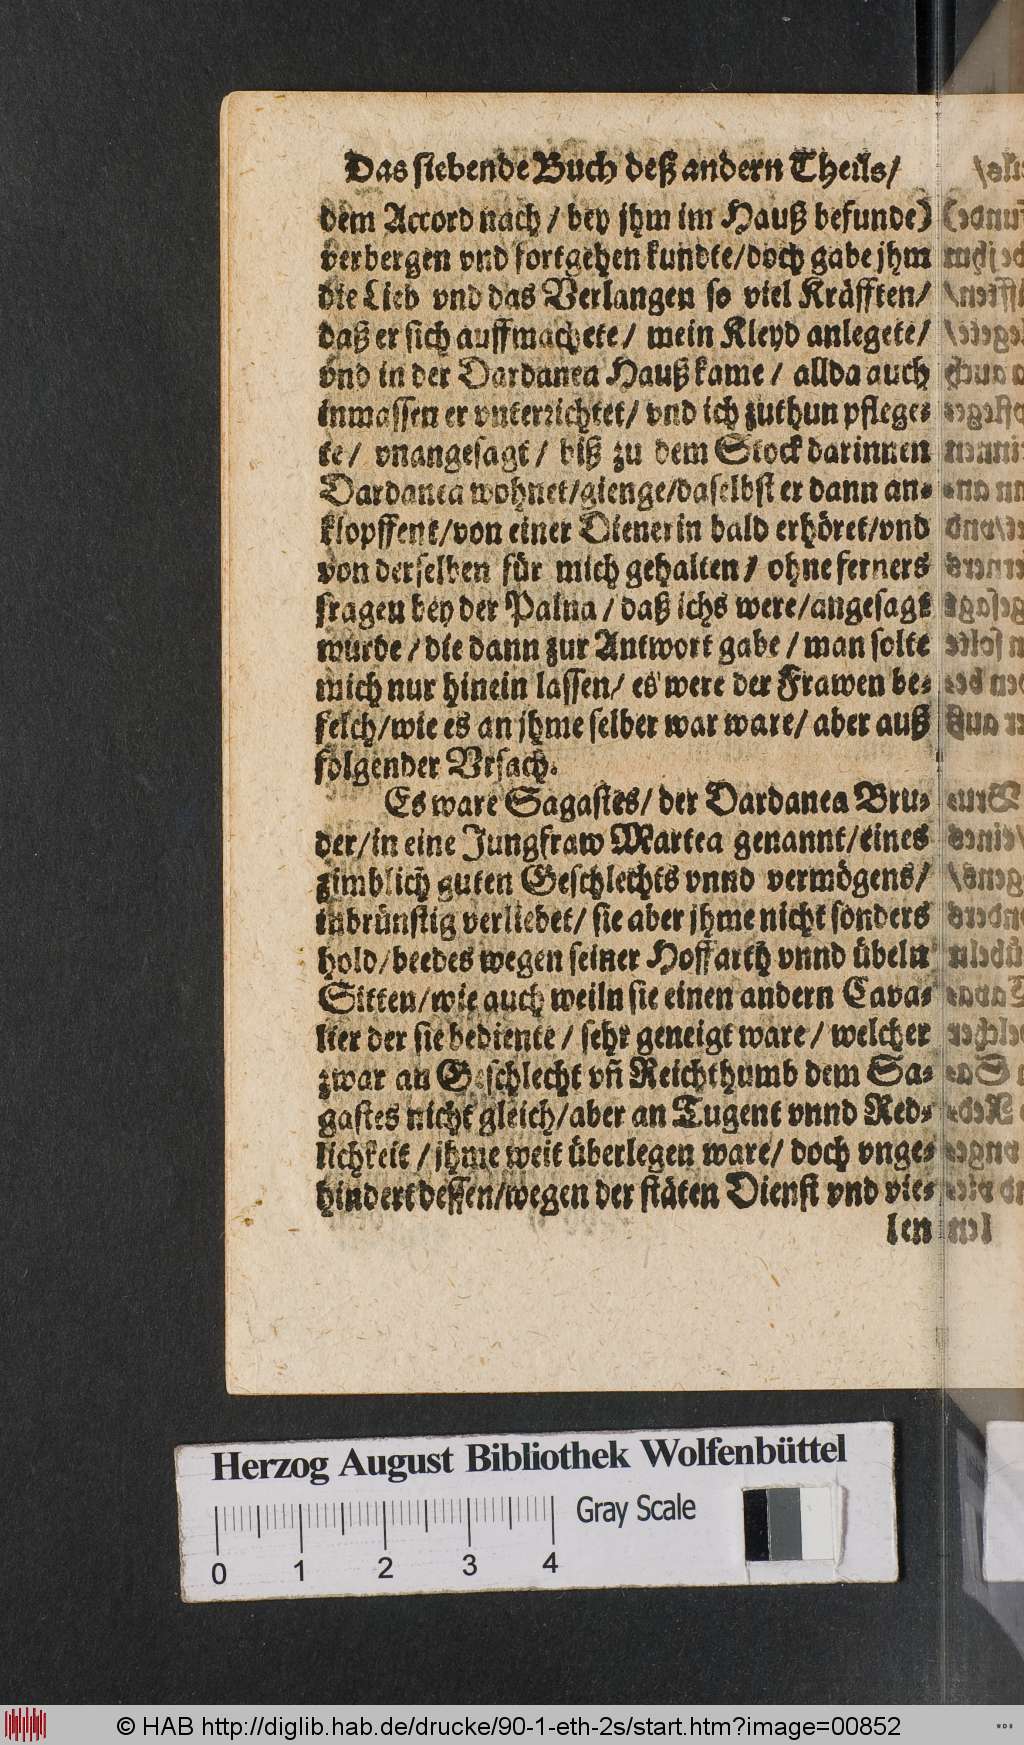 Das siebende Buch deß andern Theils/
dem Accord nach / bey jhm im Hauß befunde)
verbergen vnd fortgehen kundte/doch gabe jhm
die Lieb vnd das Verlangen so viel Kräfften/
daß er sich auffmachete / mein Kleyd anlegete/
vnd in der Dardanea Hauß kame / allda auch
inmassen er vnterrichtet/ vnd ich zuthun pflege-
te/ vnangesagt / biß zu dem Stock darinnen
Dardanea wohnet/gienge/daselbst er dann an-
klopffent/von einer Dienerin bald erhöret/vnd
von derselben für mich gehalten / ohne ferners
fragen bey der Palna / daß ichs were/angesagt
wurde / die dann zur Antwort gabe / man solte
mich nur hinein lassen/ es were der Frawen be-
felch/wie es an jhme selber war ware/ aber auß
folgender Vrsach.
Es ware Sagastes/ der Dardanea Bru-
der/in eine Jungfraw Martea genannt/eines
zimblich guten Geschlechts vnnd vermögens/
inbrünstig verliebet/ sie aber jhme nicht sonders
hold/beedes wegen seiner Hoffarth vnnd übeln
Sitten/wie auch weiln sie einen andern Cava-
lier der sie bediente / sehr geneigt ware / welcher
zwar an Geschlecht vñ Reichthumb dem Sa-
gastes nicht gleich/aber an Tugent vnnd Red-
lichkeit / jhme weit überlegen ware/ doch vnge-
hindert dessen/wegen der stäten Dienst vnd vie-
len
Herzog August Bibliothek Wolfenbüttel
Gray Scale
0 1 2 3 4
© HAB http://diglib.hab.de/drucke/90-1-eth-2s/start.htm?image=00852